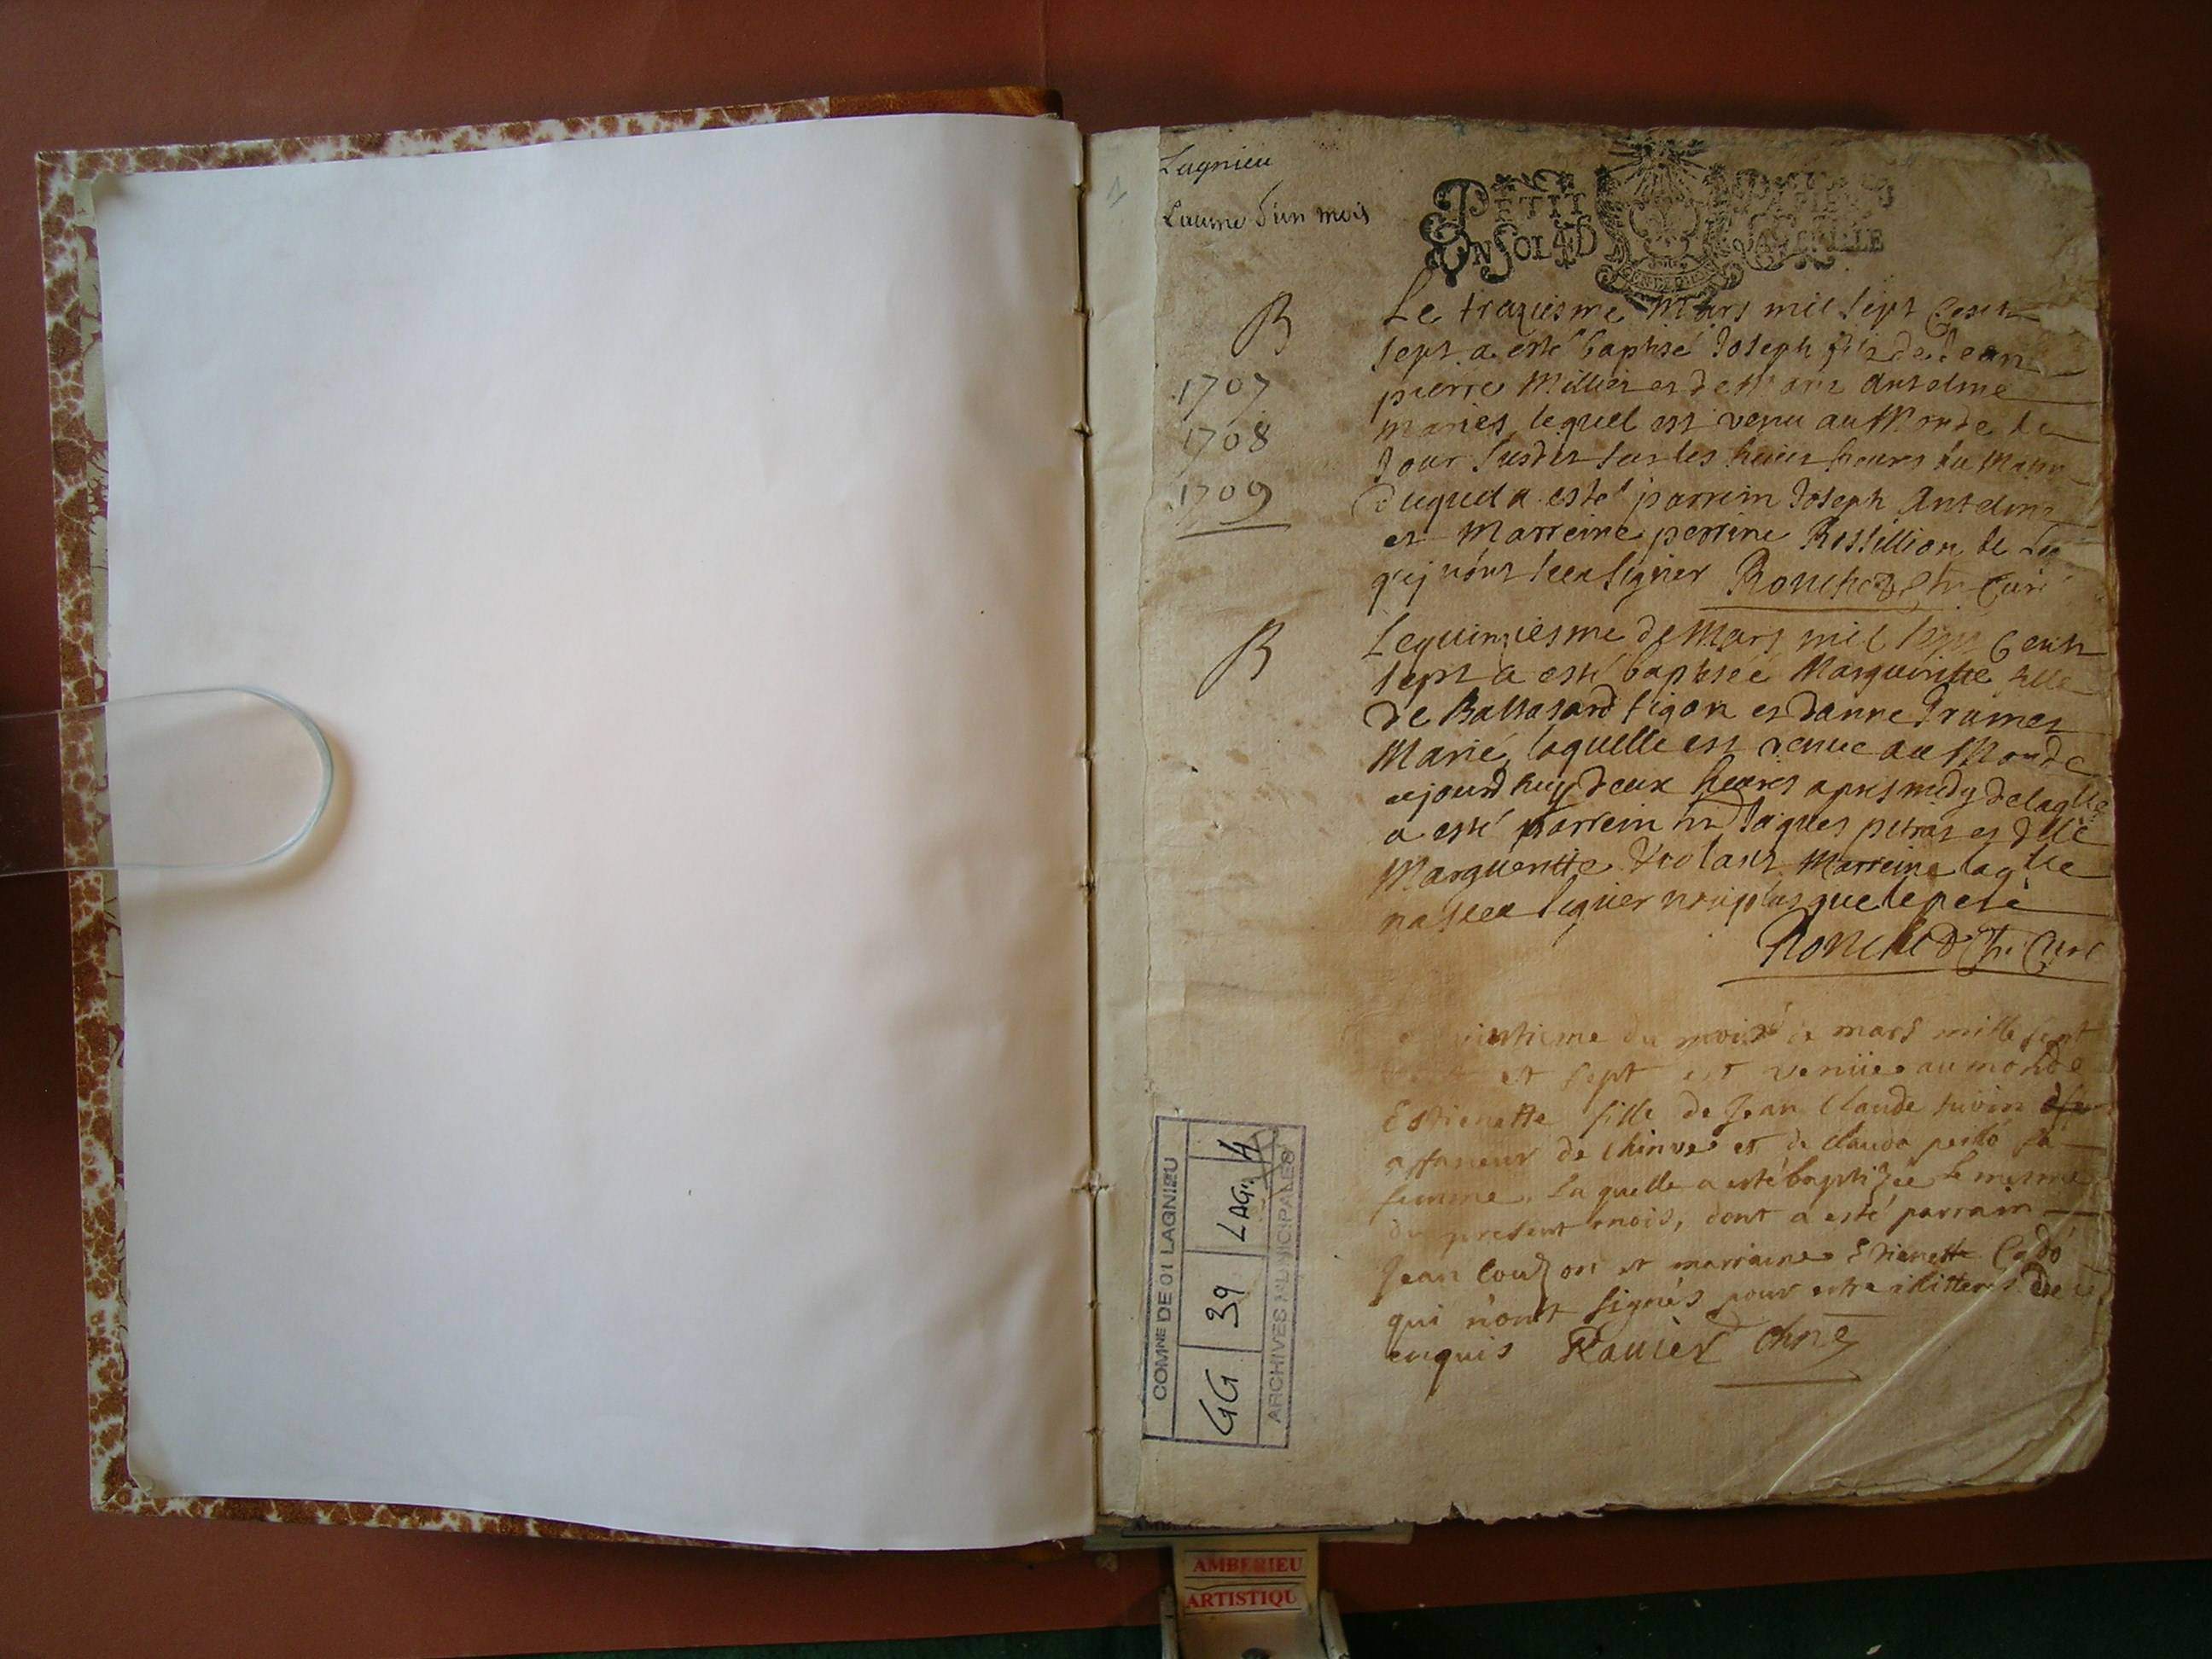 Lagnieu
Lacune d'un mois
PETIT PAPIER
UN SOL 4 D LA FEUILLE
B
1707
1708
1709
Le traziesme Mars mil sept Cents
sept a esté baptisé Joseph fils de Jean
pierre Millier et de Marie Anselme
mariés, lequel est venu au Monde le
Jour susdit sur les huict heures du Matin
Duquel a esté parrein Joseph Anselme
et Marreine perrine Rossillion
qui n'ont sceu signer Rouched Curé
B
Le quinziesme de Mars mil sept Cents
sept a esté baptisée Marguerite fille
de Baltasard figon et danne
Marié, laquelle est venue au Monde
aujourdhuy deux heures apres midy de laqlle
a esté parrein Jaques et dlle
Marguerite Marreine laqlle
na sceu signer non plus que le pere
Rouched Curé
du mois de mars mille sept
et sept est venüe au monde
Estienette fille de Jean Claude
affaneur de et de Clauda sa
femme, laquelle a esté baptizée le mesme
du present mois, dont a esté parrain
Jean Couzon et marraine Estienette
qui n'ont signés pour estre illitterés de ce
enquis Ravier
COMNE DE 01 LAGNIEU
GG 39 LAGN 4
ARCHIVES MUNICIPALES
AMBERIEU
ARTISTIQU